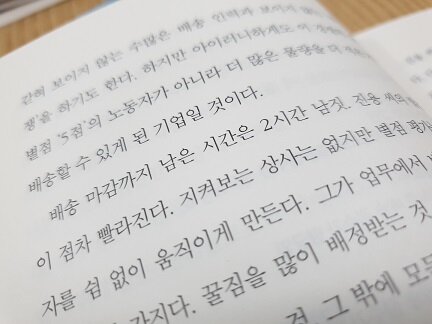 갇혀 보이지 않는 수많은 배송 인력과 보이지 않는
쟁'을 하기도 한다. 하지만 아이러니하게도 이
별점 '5점'의 노동자가 아니라 더 많은 물량을 더
배송할 수 있게 된 기업일 것이다.
배송 마감까지 남은 시간은 2시간 남짓. 진용 씨의
이 점차 빨라진다. 지켜보는 상사는 없지만 별점 평가
자를 쉼 없이 움직이게 만든다. 그가 업무에서
가지다. 꿀점을 많이 배정받는 것
그 밖에 모든